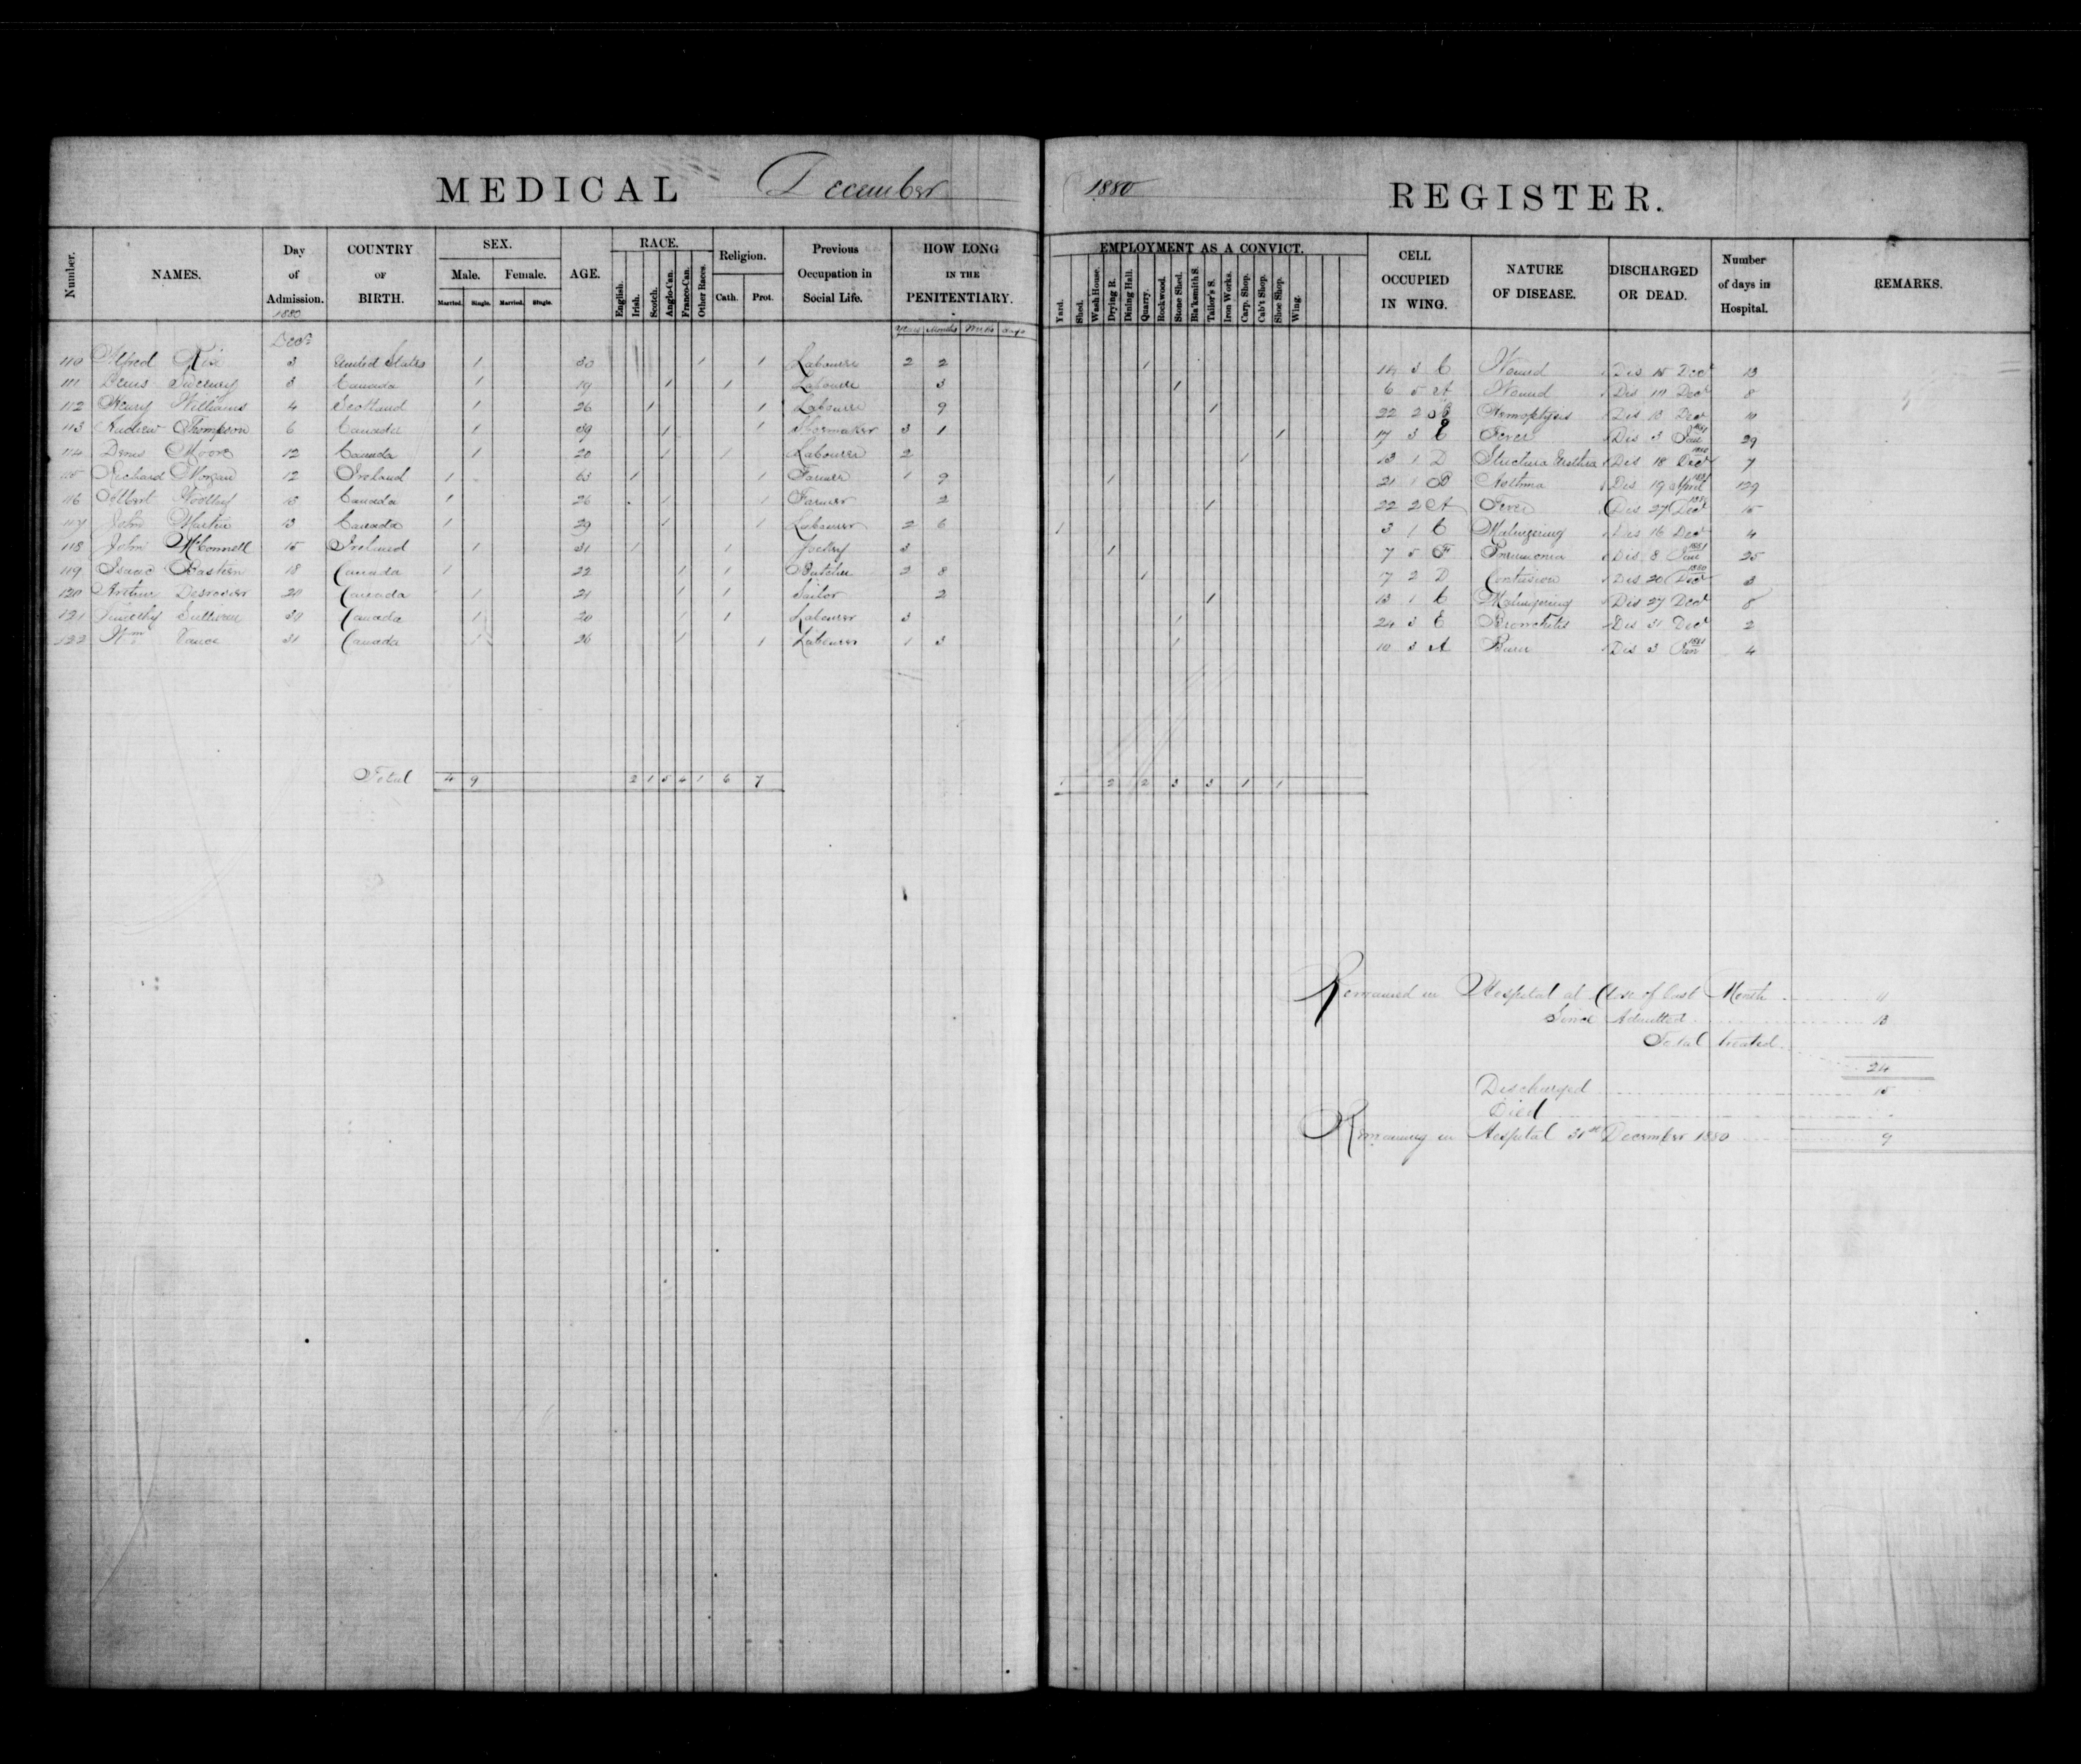 MEDICAL December 1880 REGISTER.
Number. NAMES. Day of Admission. 1880 COUNTRY OF BIRTH. SEX. Male. Female. Married. Single. Married. Single. AGE. RACE. English. Irish. Scotch. Anglo-Can. Franco-Can. Other Races. Religion. Cath. Prot. Previous Occupation in Social Life. HOW LONG IN THE PENITENTIARY. Years Months Weeks days EMPLOYMENT AS A CONVICT. Yard. Shed. Wash House. Drying R. Dining Hall. Quarry. Rockwood. Stone Shed. Bla'ksmith S. Tailor's S. Iron Works. Carp. Shop. Cab't Shop. Shoe Shop. Wing. CELL OCCUPIED IN WING. NATURE OF DISEASE. DISCHARGED OR DEAD. Number of days in Hospital. REMARKS.
Decr
110 Alfred 3 United States 1 30 1 1 Labourer 2 2 1 14 3 C Wound Dis 15 Decr 13
111 Denis Sweeney 3 Canada 1 19 1 1 Labourer 3 1 6 5 A Wound Dis Decr 8
112 Henry Williams 4 Scotland 1 26 1 1 Labourer 9 1 22 2 Hemoptysis Dis 13 Decr
113 Andrew Thompson 6 Canada 1 39 1 1 Shoemaker 3 1 1 17 3 E Fever Dis 3 Jan 1881 29
114 Denis Moore 12 Canada 1 20 1 1 Labourer 2 1 13 1 D Strictura Urethra Dis 18 Decr 1880 7
115 Richard Morgan 12 Ireland 1 63 1 1 Farmer 1 9 1 21 1 D Asthma Dis 19 April 1881 129
116 Albert Woolley 13 Canada 1 26 1 1 Farmer 2 1 22 2 A Fever Dis 27 Decr 1880 15
117 John Martin 13 Canada 1 29 1 1 Labourer 2 6 1 3 1 C Malingering Dis 16 Decr 4
118 John McConnell 15 Ireland 1 31 1 1 Jockey 3 1 7 5 F Pneumonia Dis 8 Jan 1881 25
119 Isaac Bastien 18 Canada 1 22 1 1 Butcher 2 8 1 7 2 D Contusion Dis 20 Decr 1880 3
120 Arthur Desrosier 20 Canada 1 21 1 1 Sailor 2 1 13 1 C Malingering Dis 27 Decr 8
121 Timothy Sullivan 30 Canada 1 20 1 1 Labourer 3 1 24 3 E Bronchitis Dis 31 Decr 2
122 Wm Vance 31 Canada 1 26 1 1 Labourer 1 3 1 10 3 A Dis 3 Jan 1881 4
Total 4 9 2 1 5 4 1 6 7 1 2 2 3 3 1 1
Remained in Hospital at Close of last Month 11
Since Admitted 13
Total treated
24
Discharged 15
Died
Remaining in Hospital 31st December 1880 9